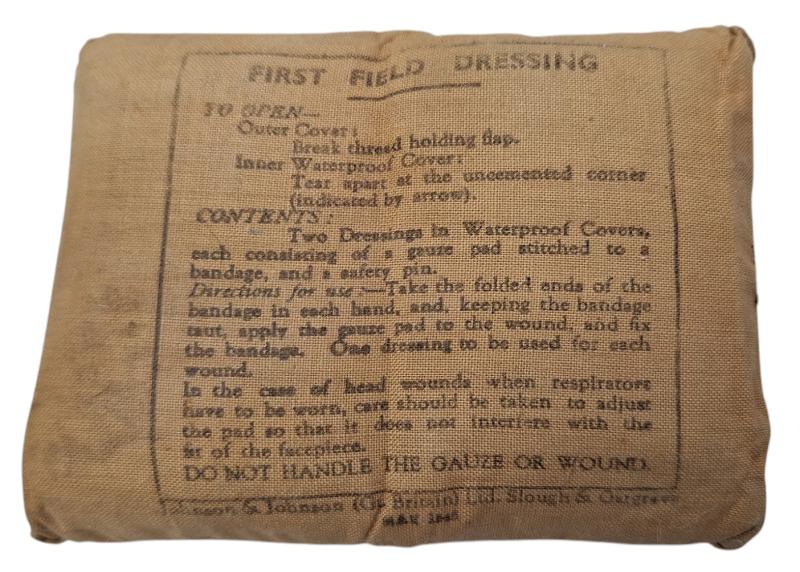 FIRST FIELD DRESSING
TO OPEN—
Outer Cover:
Break thread holding flap.
Inner Waterproof Cover:
Tear apart at the uncemented corner
(indicated by arrow).
CONTENTS:
Two Dressings in Waterproof Covers,
each consisting of a gauze pad stitched to a
bandage, and a safety pin.
Directions for use:—Take the folded ends of the
bandage in each hand, and, keeping the bandage
taut, apply the gauze pad to the wound, and fix
the bandage. One dressing to be used for each
wound.
In the case of head wounds when respirators
have to be worn, care should be taken to adjust
the pad so that it does not interfere with the
fit of the facepiece.
DO NOT HANDLE THE GAUZE OR WOUND.
Johnson & Johnson (Gt. Britain) Ltd. Slough & Gargrave